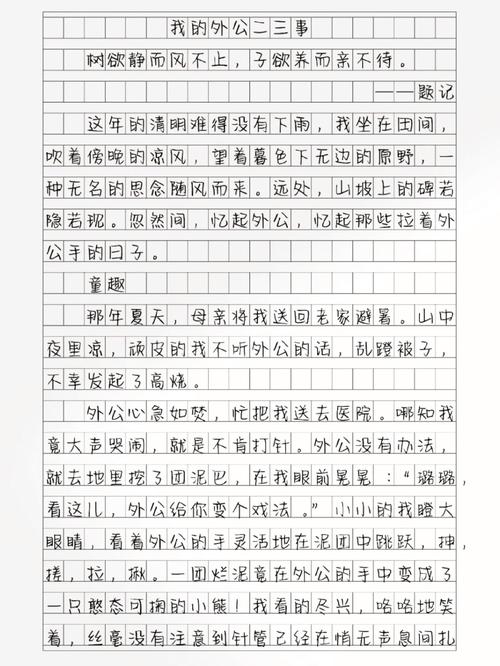 我的外公二三事
树欲静而风不止，子欲养而亲不待。
——题记
这年的清明难得没有下雨，我坐在田间，
吹着傍晚的凉风，望着暮色下无边的原野，一
种无名的思念随风而来。远处，山坡上的碑若
隐若现。忽然间，忆起外公，忆起那些拉着外
公手的日子。
童趣
那年夏天，母亲将我送回老家避暑。山中
夜里凉，顽皮的我不听外公的话，乱蹬被子，
不幸发起了高烧。
外公心急如焚，忙把我送去医院。哪知我
竟大声哭闹，就是不肯打针。外公没有办法，
就去地里挖了团泥巴，在我眼前晃晃：“璐璐，
看这儿，外公给你变个戏法。”小小的我瞪大
眼睛，看着外公的手灵活地在泥团中跳跃，抻，
搓，拉，揪。一团烂泥竟在外公的手中变成了
一只憨态可掬的小熊！我看的尽兴，咯咯地笑
着，丝毫没有注意到针管已经在悄无声息间扎